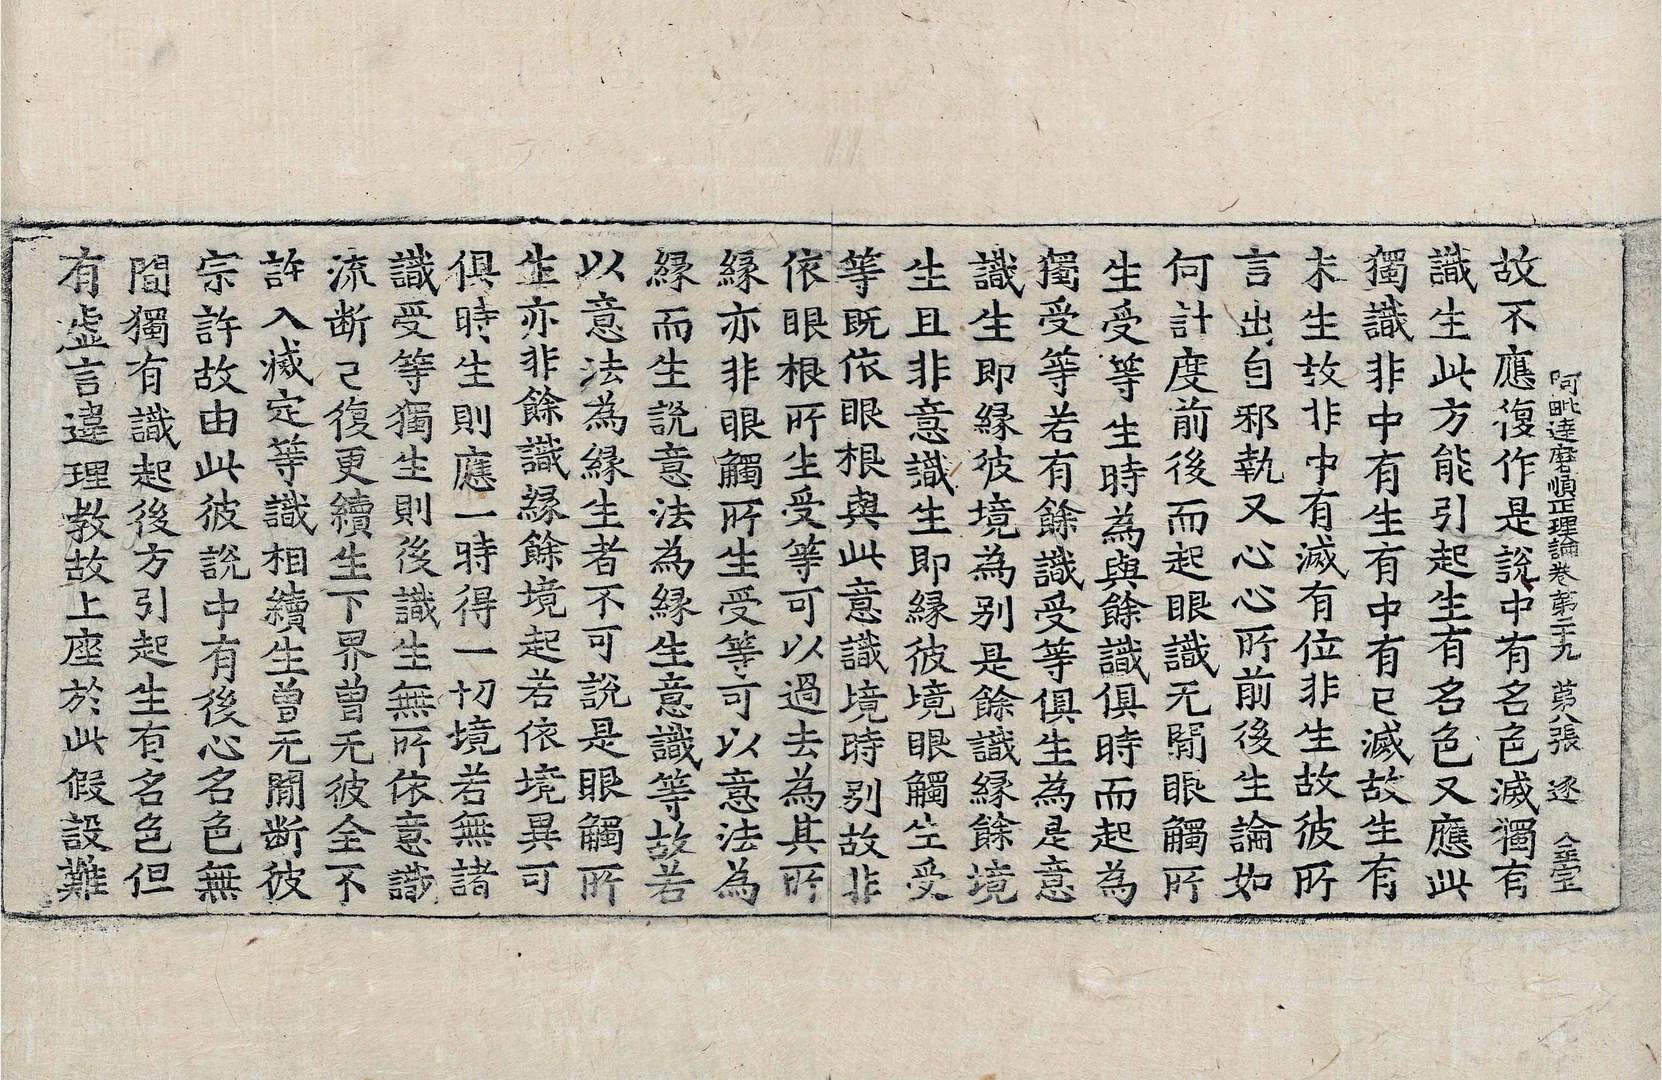 阿毗達磨順正理論卷第二十九　第八張　逐
故不應復作是說中有名色滅獨有
識生此方能引起生有名色又應此
獨識非中有生有中有已滅故生有
未生故非中有滅有位非生故彼所
言出自邪執又心心所前後生論如
何計度前後而起眼識无閒眼觸所
生受等生時為與餘識俱時而起為
獨受等若有餘識受等俱生為是意
識生即緣彼境為別是餘識緣餘境
生且非意識生即緣彼境眼觸生受
等既依眼根與此意識境時別故非
依眼根所生受等可以過去為其所
緣亦非眼觸所生受等可以意法為
緣而生說意法為緣生意識等故若
以意法為緣生者不可說是眼觸所
生亦非餘識緣餘境起若依境異可
俱時生則應一時得一切境若無諸
識受等獨生則後識生無所依意識
流斷已復更續生下界曾无彼全不
許入滅定等識相續生曾无閒斷彼
宗許故由此彼說中有後心名色無
閒獨有識起後方引起生有名色但
有虛言違理教故上座於此假設難